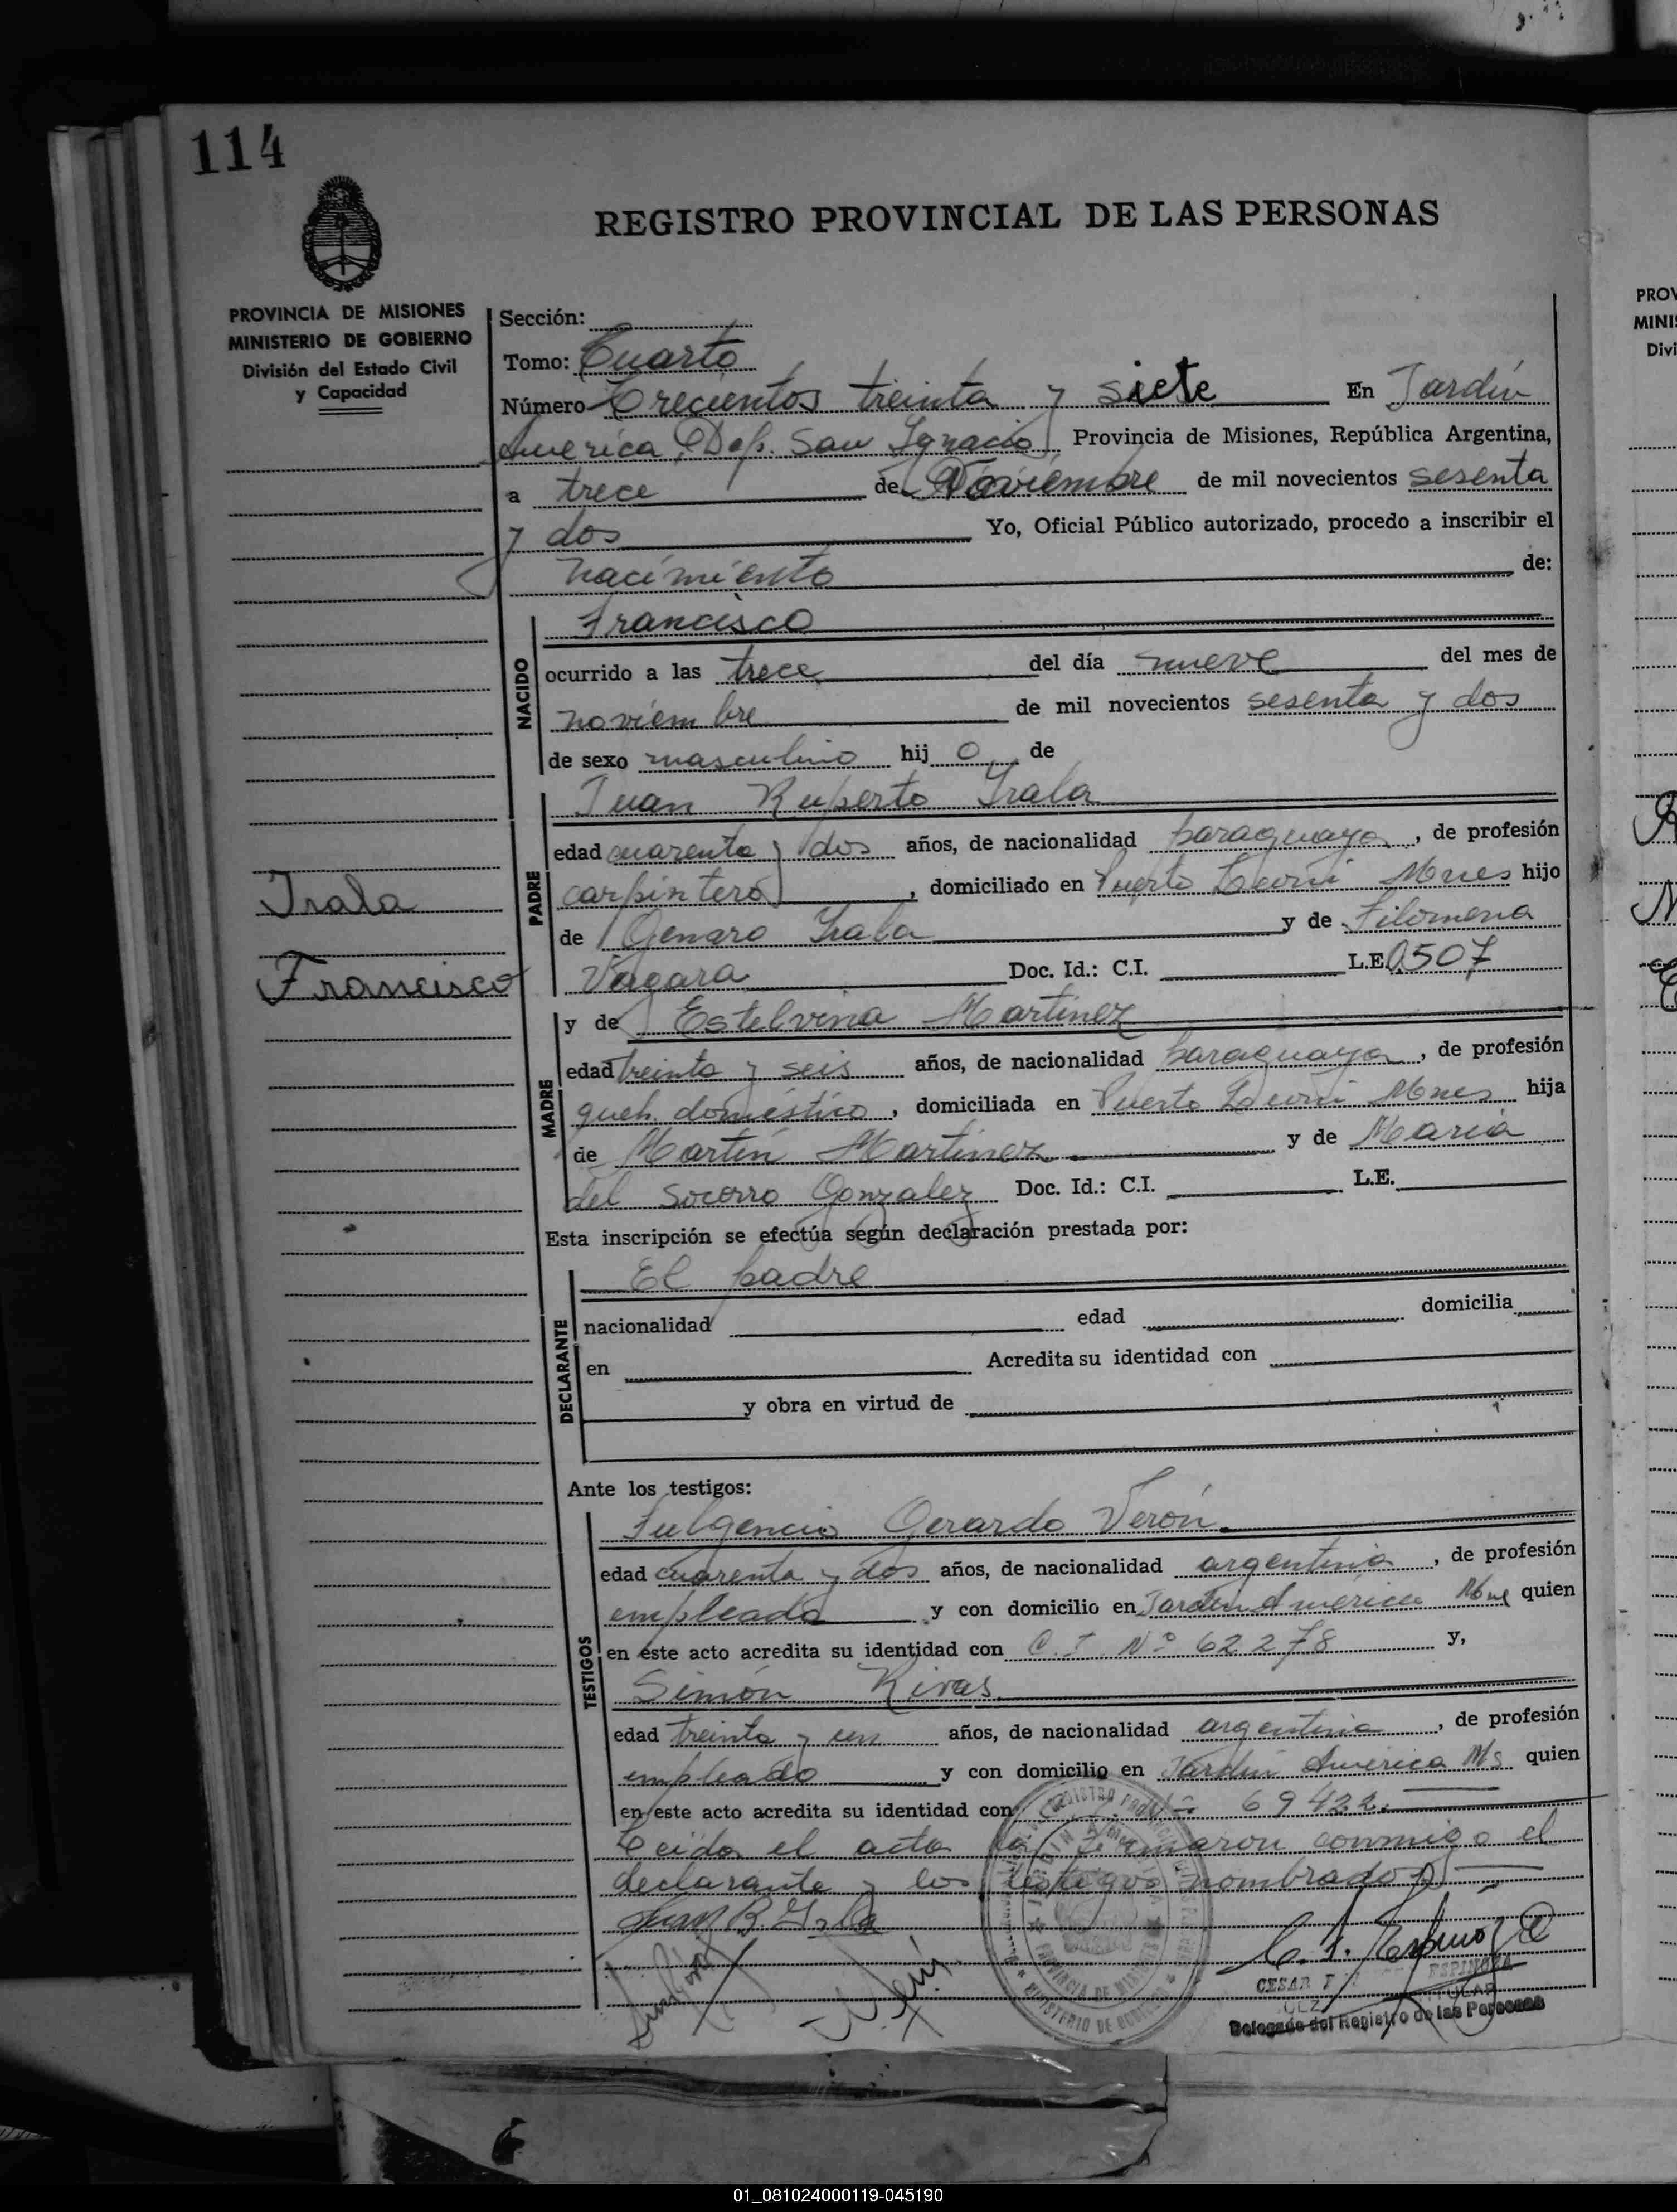 114
REGISTRO PROVINCIAL DE LAS PERSONAS
PROVINCIA DE MISIONES
MINISTERIO DE GOBIERNO
División del Estado Civil
y Capacidad
Sección:
Tomo: Cuarto
Número Trecientos treinta y siete En Jardín
America, Dep. San Ignacio, Provincia de Misiones, República Argentina,
a trece de Noviembre de mil novecientos sesenta
y dos Yo, Oficial Público autorizado, procedo a inscribir el
nacimiento de:
NACIDO
Francisco
ocurrido a las trece del día nueve del mes de
noviembre de mil novecientos sesenta y dos
de sexo masculino hij o de
PADRE
Juan Ruperto Irala
edad cuarenta y dos años, de nacionalidad paraguaya, de profesión
carpintero, domiciliado en Puerto Leoni Mnes hijo
de Genaro Irala y de Filomena
Vagara Doc. Id.: C.I. L.E. 0.507
Irala
Francisco
MADRE
y de Estelvina Martinez
edad treinta y seis años, de nacionalidad paraguaya, de profesión
queh. doméstico, domiciliada en Puerto Leoni Mnes hija
de Martín Martinez y de María
del Socorro Gonzalez Doc. Id.: C.I. L.E.
Esta inscripción se efectúa según declaración prestada por:
DECLARANTE
El padre
nacionalidad edad domicilia
en Acredita su identidad con
y obra en virtud de
Ante los testigos:
TESTIGOS
Fulgencio Gerardo Verón
edad cuarenta y dos años, de nacionalidad argentina, de profesión
empleado y con domicilio en Jardín America Mnes quien
en este acto acredita su identidad con C.I. Nº 62278 y,
Simón Rivas
edad treinta y un años, de nacionalidad argentina, de profesión
empleado y con domicilio en Jardín América Ms quien
en este acto acredita su identidad con Nº 69422.
Leida el acta la firmaron conmigo el
declarante y los testigos nombrados
C. Espinoza
CESAR ESPINOZA
TITULAR
Delegado del Registro de las Personas
PROVINCIA DE MISIONES
MINISTERIO DE GOBIERNO
PROV
MINIS
Divi
01_081024000119-045190